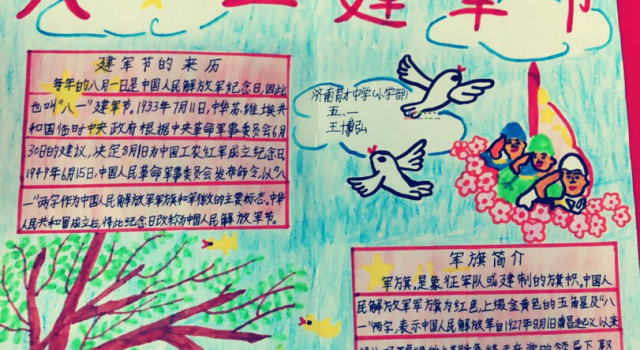 八一建军节
建军节的来历
每年的八月一日是中国人民解放军纪念日,因此
也叫"八一"建军节。1933年7月11日,中华苏维埃共
和国临时中央政府根据中央革命军事委员会6月
30日的建议,决定8月1日为中国工农红军成立纪念日
1949年6月15日,中国人民革命军事委员会发布命令,以"八
一"两字作为中国人民解放军军旗和军徽的主要标志。中华
人民共和国成立后,将此纪念日改称为中国人民解放军节。
济南育才中学(小学部)
五、一
王博弘
军旗简介
军旗,是象征军队或建制的旗帜,中国人
民解放军军旗为红色,上缀金黄色的五角星及"八
一"两字,表示中国人民解放军自1927年8月1日南昌起义以来